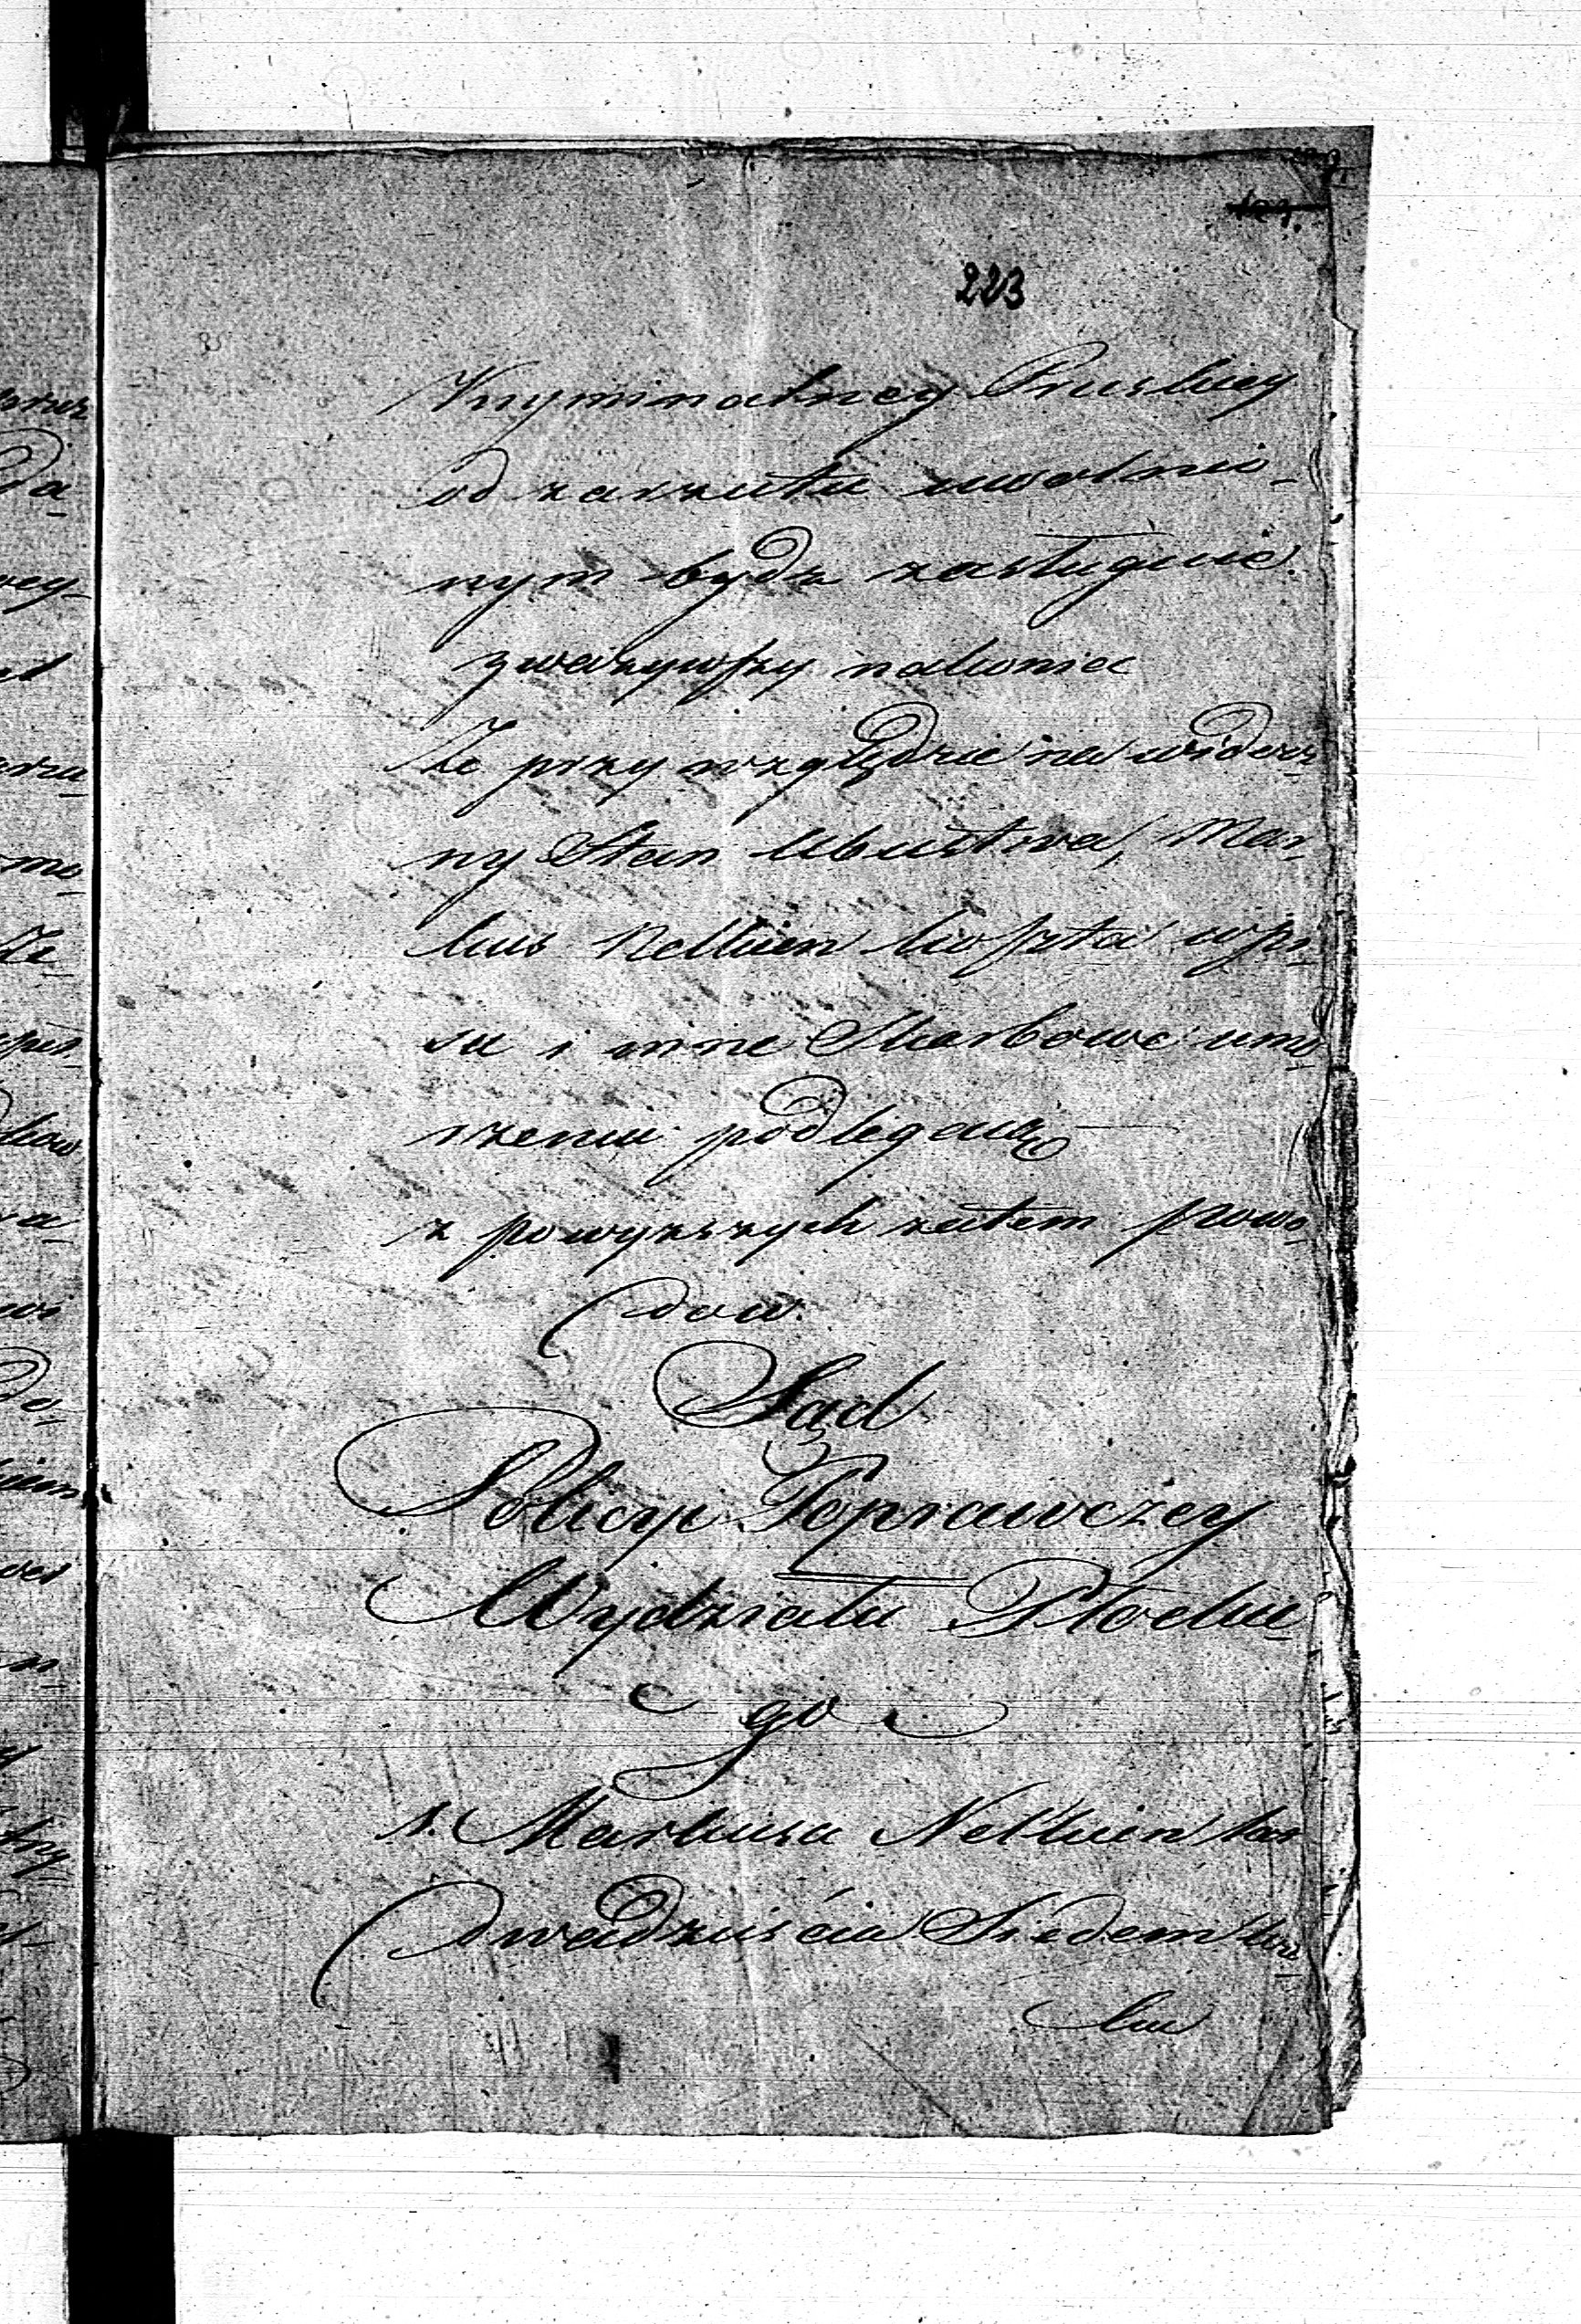 223
Kryminalney Pruskiey
od zarzutu uwolnio-
nym bydz zasługuie.
zważywszy nakoniec
Że przy względzie na widocz-
ny Stan Ubustwa, Mar-
kus Nelkien koszta wpi-
su i inne Skarbowe umo-
rzeniu podlegaią
z powyzszych zatem powo-
dow.
Sąd
Policyi Poprawczey
Wydziału Płockie-
go
1. Markusa Nelkien lat
Dwadzieścia Siedem wie-
ku